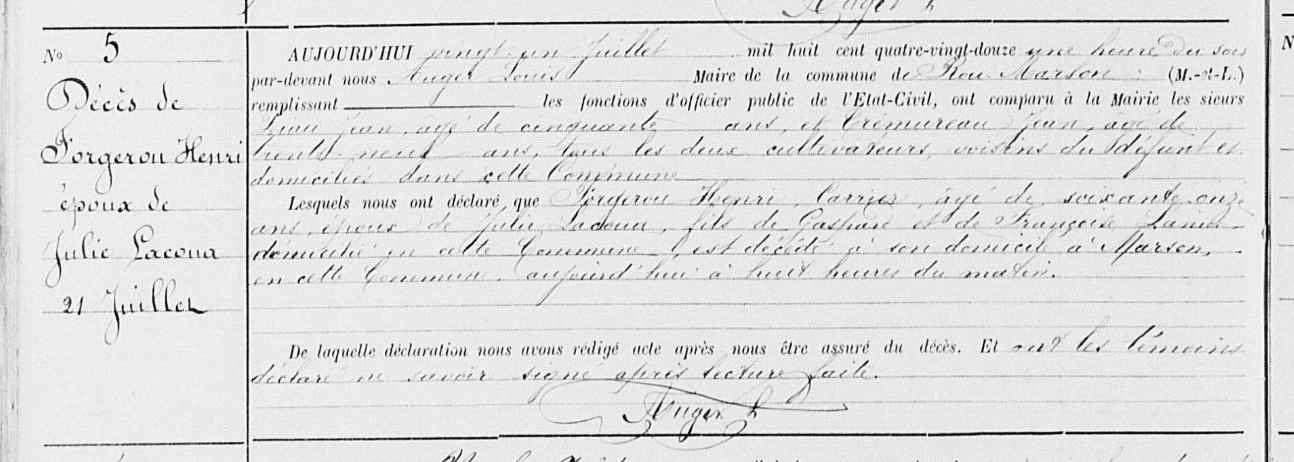 Auger L
No 5
Décès de
Forgerou Henri
époux de
Julie Lacoua
21 Juillet
AUJOURD'HUI vingt un Juillet mil huit cent quatre-vingt-douze une heure du soir
par-devant nous Auger Louis Maire de la commune de Rou Marson (M.-&-L.)
remplissant les fonctions d'officier public de l'Etat-Civil, ont comparu à la Mairie les sieurs
Jean, âgé de cinquante ans, et Crémureau Jean, âgé de
trente neuf ans, tous les deux cultivateurs, voisins du défunt et
domiciliés dans cette Commune
Lesquels nous ont déclaré que Forgerou Henri, Carrier, âgé de soixante onze
ans, époux de Julie Lacoua, fils de Gaspard et de Françoise
domicilié en cette Commune, est décédé à son domicile à Marson,
en cette Commune aujourd'hui à huit heures du matin.
De laquelle déclaration nous avons rédigé acte après nous être assuré du décès. Et ont les témoins
déclaré ne savoir signé après lecture faite.
Auger L
N